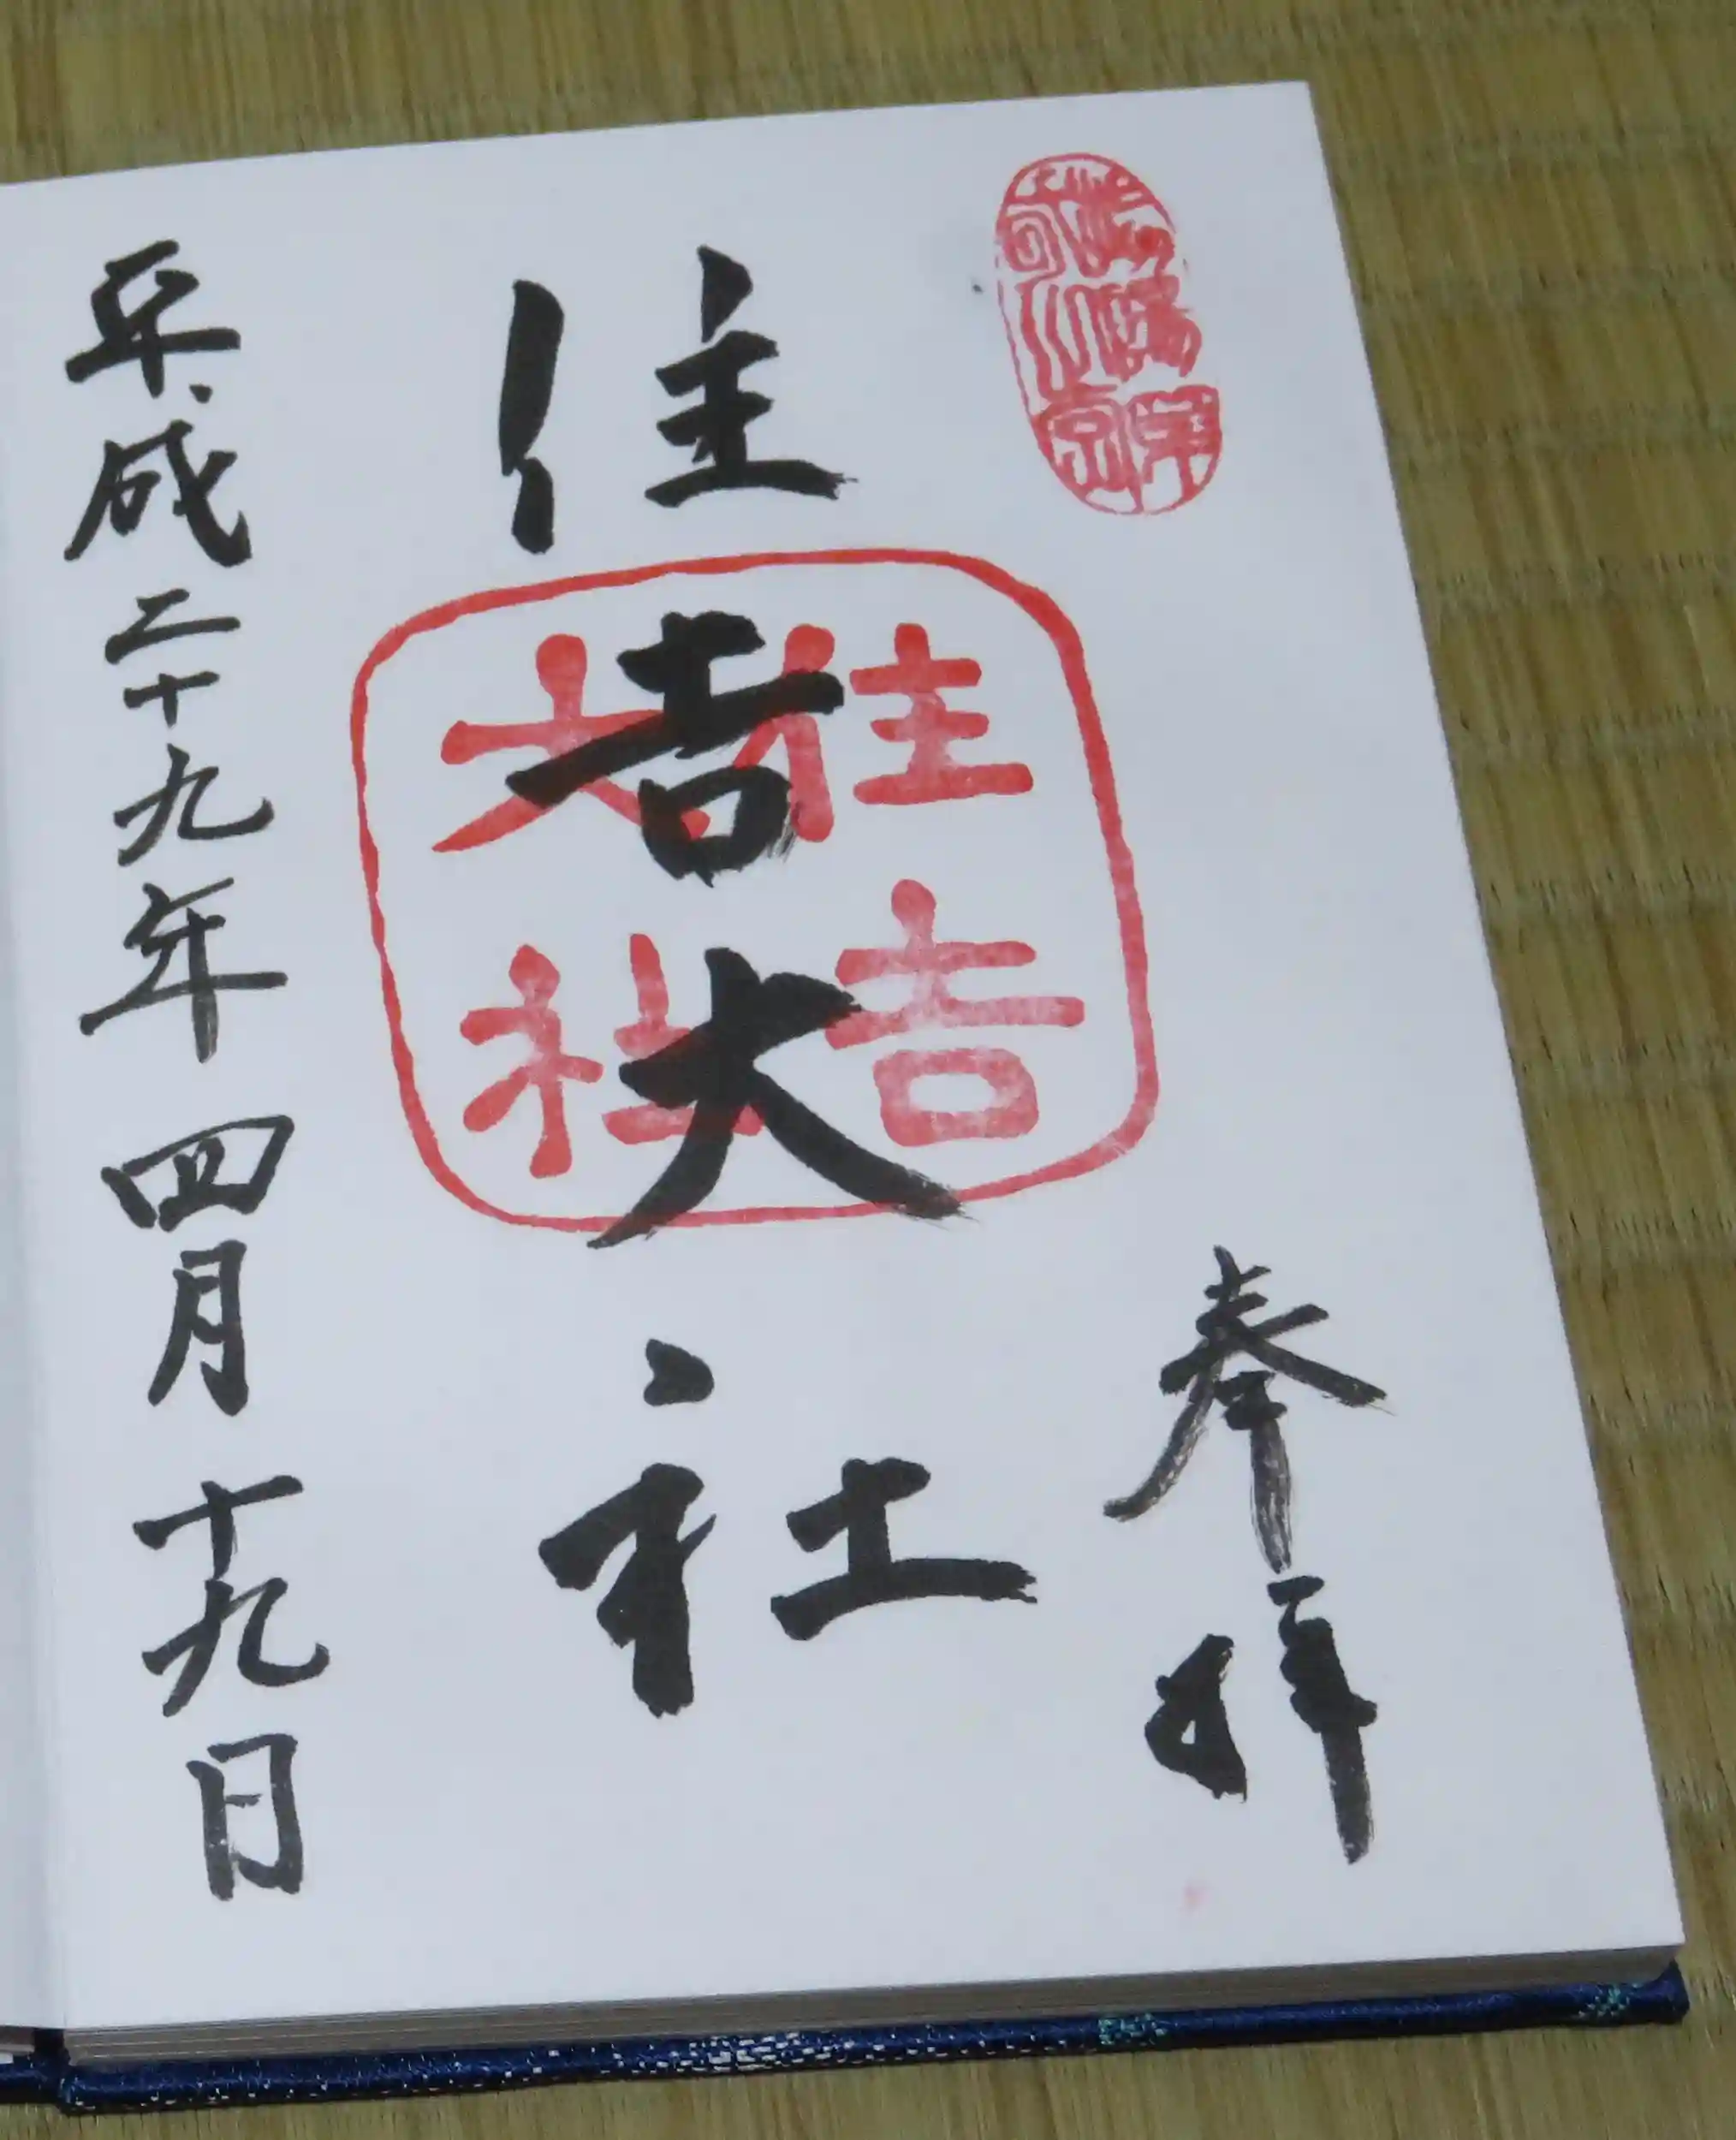 奉拝
住吉大社
住吉
大社
平成二十九年四月十九日